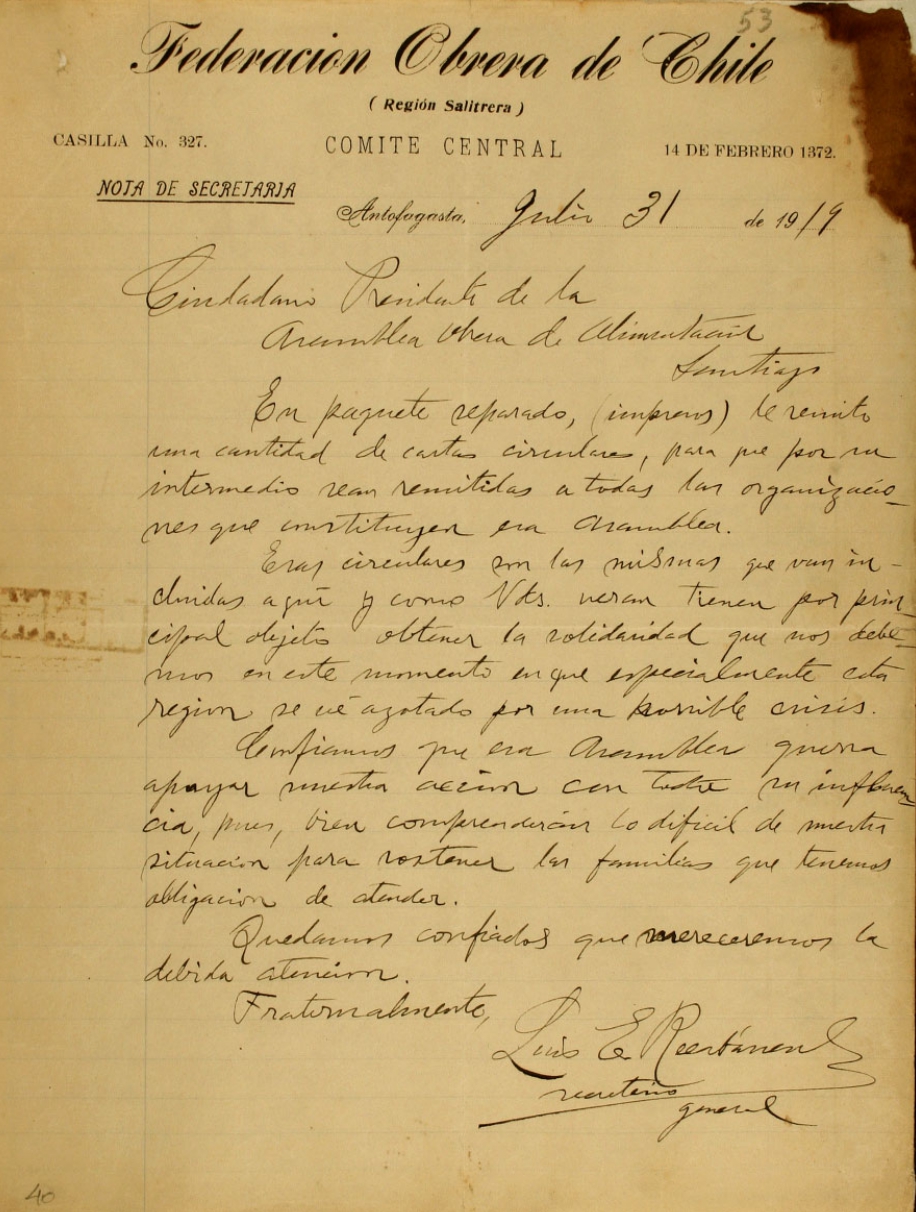 53
Federacion Obrera de Chile
( Región Salitrera )
CASILLA No. 327. COMITE CENTRAL 14 DE FEBRERO 1372.
NOTA DE SECRETARIA
Antofagasta, Julio 31 de 1919
Ciudadano Presidente de la
Asamblea Obrera de Alimentación
Santiago
En paquete separado, (impresos) le remito
una cantidad de cartas circulares, para que por su
intermedio sean remitidas a todas las organizacio-
nes que constituyen esa Asamblea.
Esas circulares son las mismas que van in-
cluidas aquí y como Vds. veran tienen por prin-
cipal objeto obtener la solidaridad que nos debe-
mos en este momento en que especialmente esta
region se vé azotado por una horrible crisis.
Confiamos que esa Asamblea querra
apoyar nuestra accion con toda su influen-
cia, pues, bien comprenderán lo dificil de nuestra
situacion para sostener las familias que tenemos
obligacion de atender.
Quedamos confiados que mereceremos la
debida atencion.
Fraternalmente,
Luis E Recabarren S
secretario
general
40